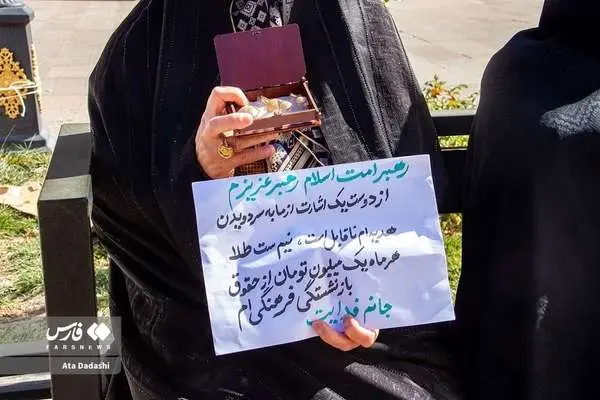 رهبر امت اسلام رهبر عزیزم
از دوست یک اشارت از ما به سر دویدن
هدیه ام ناقابل است ، نیم ست طلا
هر ماه یک میلیون تومان از حقوق
بازنشستگی فرهنگی ام
جانم فدایت
فارس
FARSNEWS
Ata Dadashi